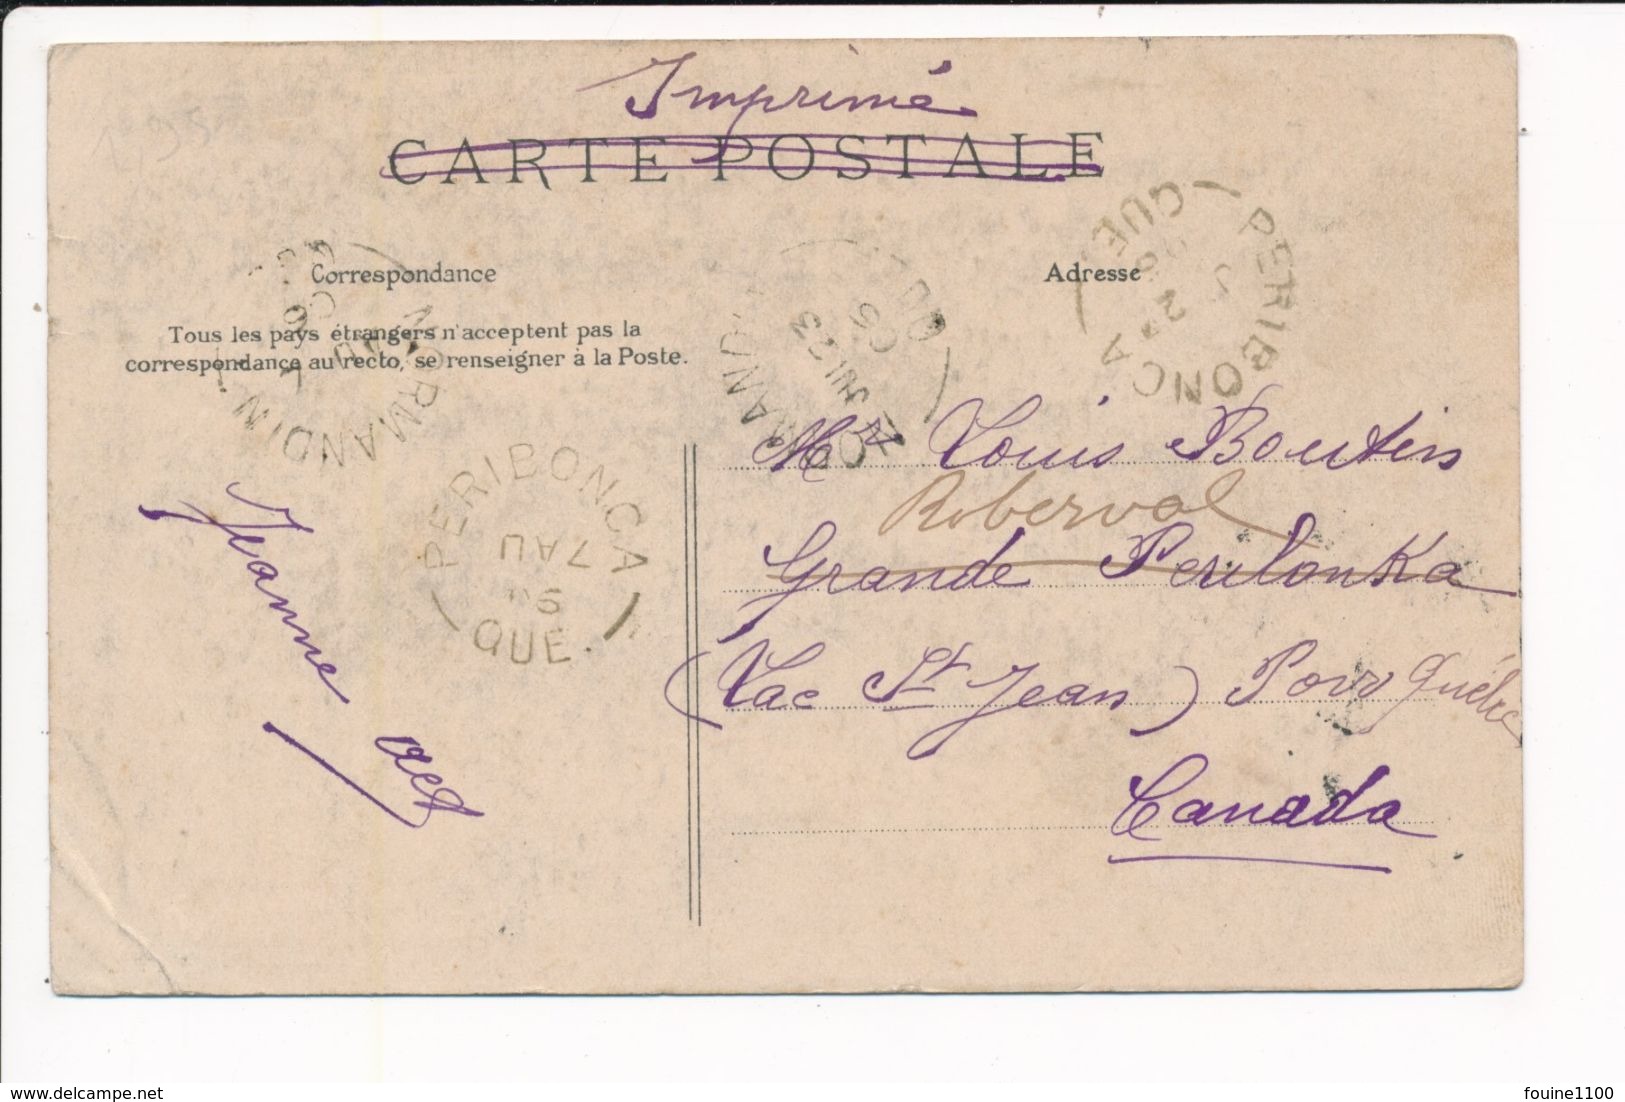 Imprimé
CARTE POSTALE
Correspondance
Adresse
Tous les pays étrangers n'acceptent pas la
correspondance au recto, se renseigner à la Poste.
PERIBONCA
QUE
PERIBONCA
7 AU
QUE.
NORMANDIN
JUL 23
Mr Louis Boutin
Roberval
Grande Peribonka
(Lac St Jean) Prov Québec
Canada
Jeanne
delcampe.net
fouine1100